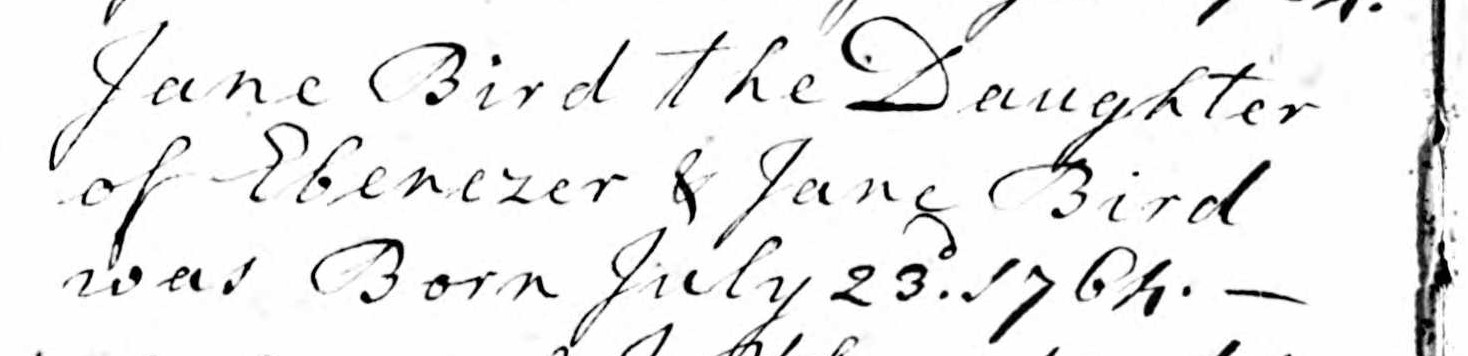 Jane Bird the Daughter
of Ebenezer & Jane Bird
was Born July 23d. 1764. —